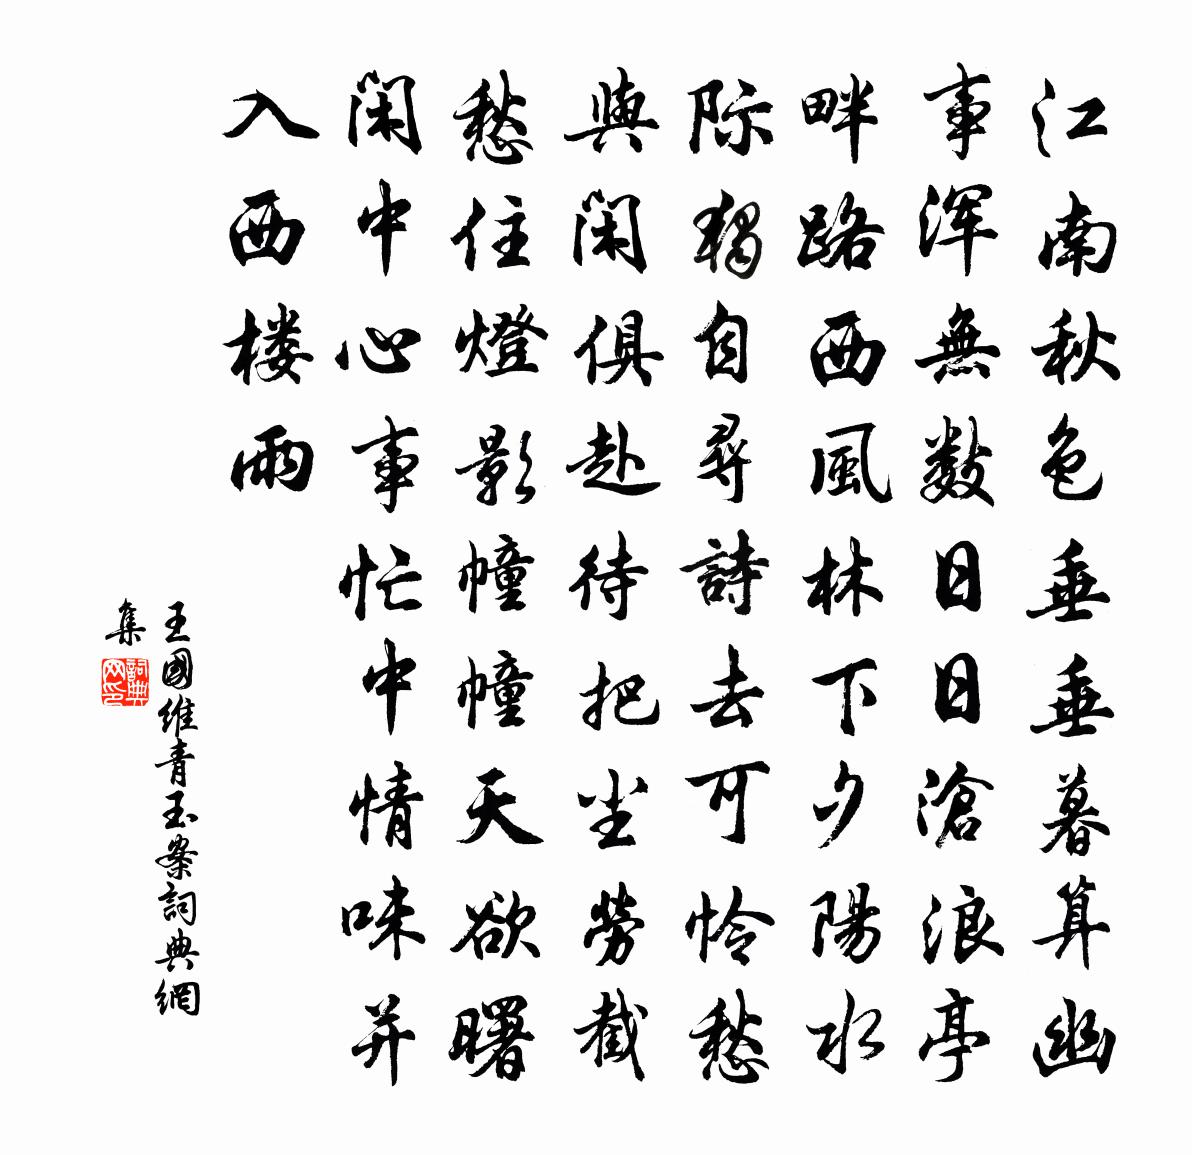 江南秋色垂垂暮算幽
事浑無數日日滄浪亭
畔路西風林下夕陽水
际獨自尋詩去可怜愁
與闲俱赴待把尘勞截
愁住燈影幢幢天欲曙
闲中心事忙中情味并
入西楼雨
王國維青玉案詞典網
集
詞典
网印